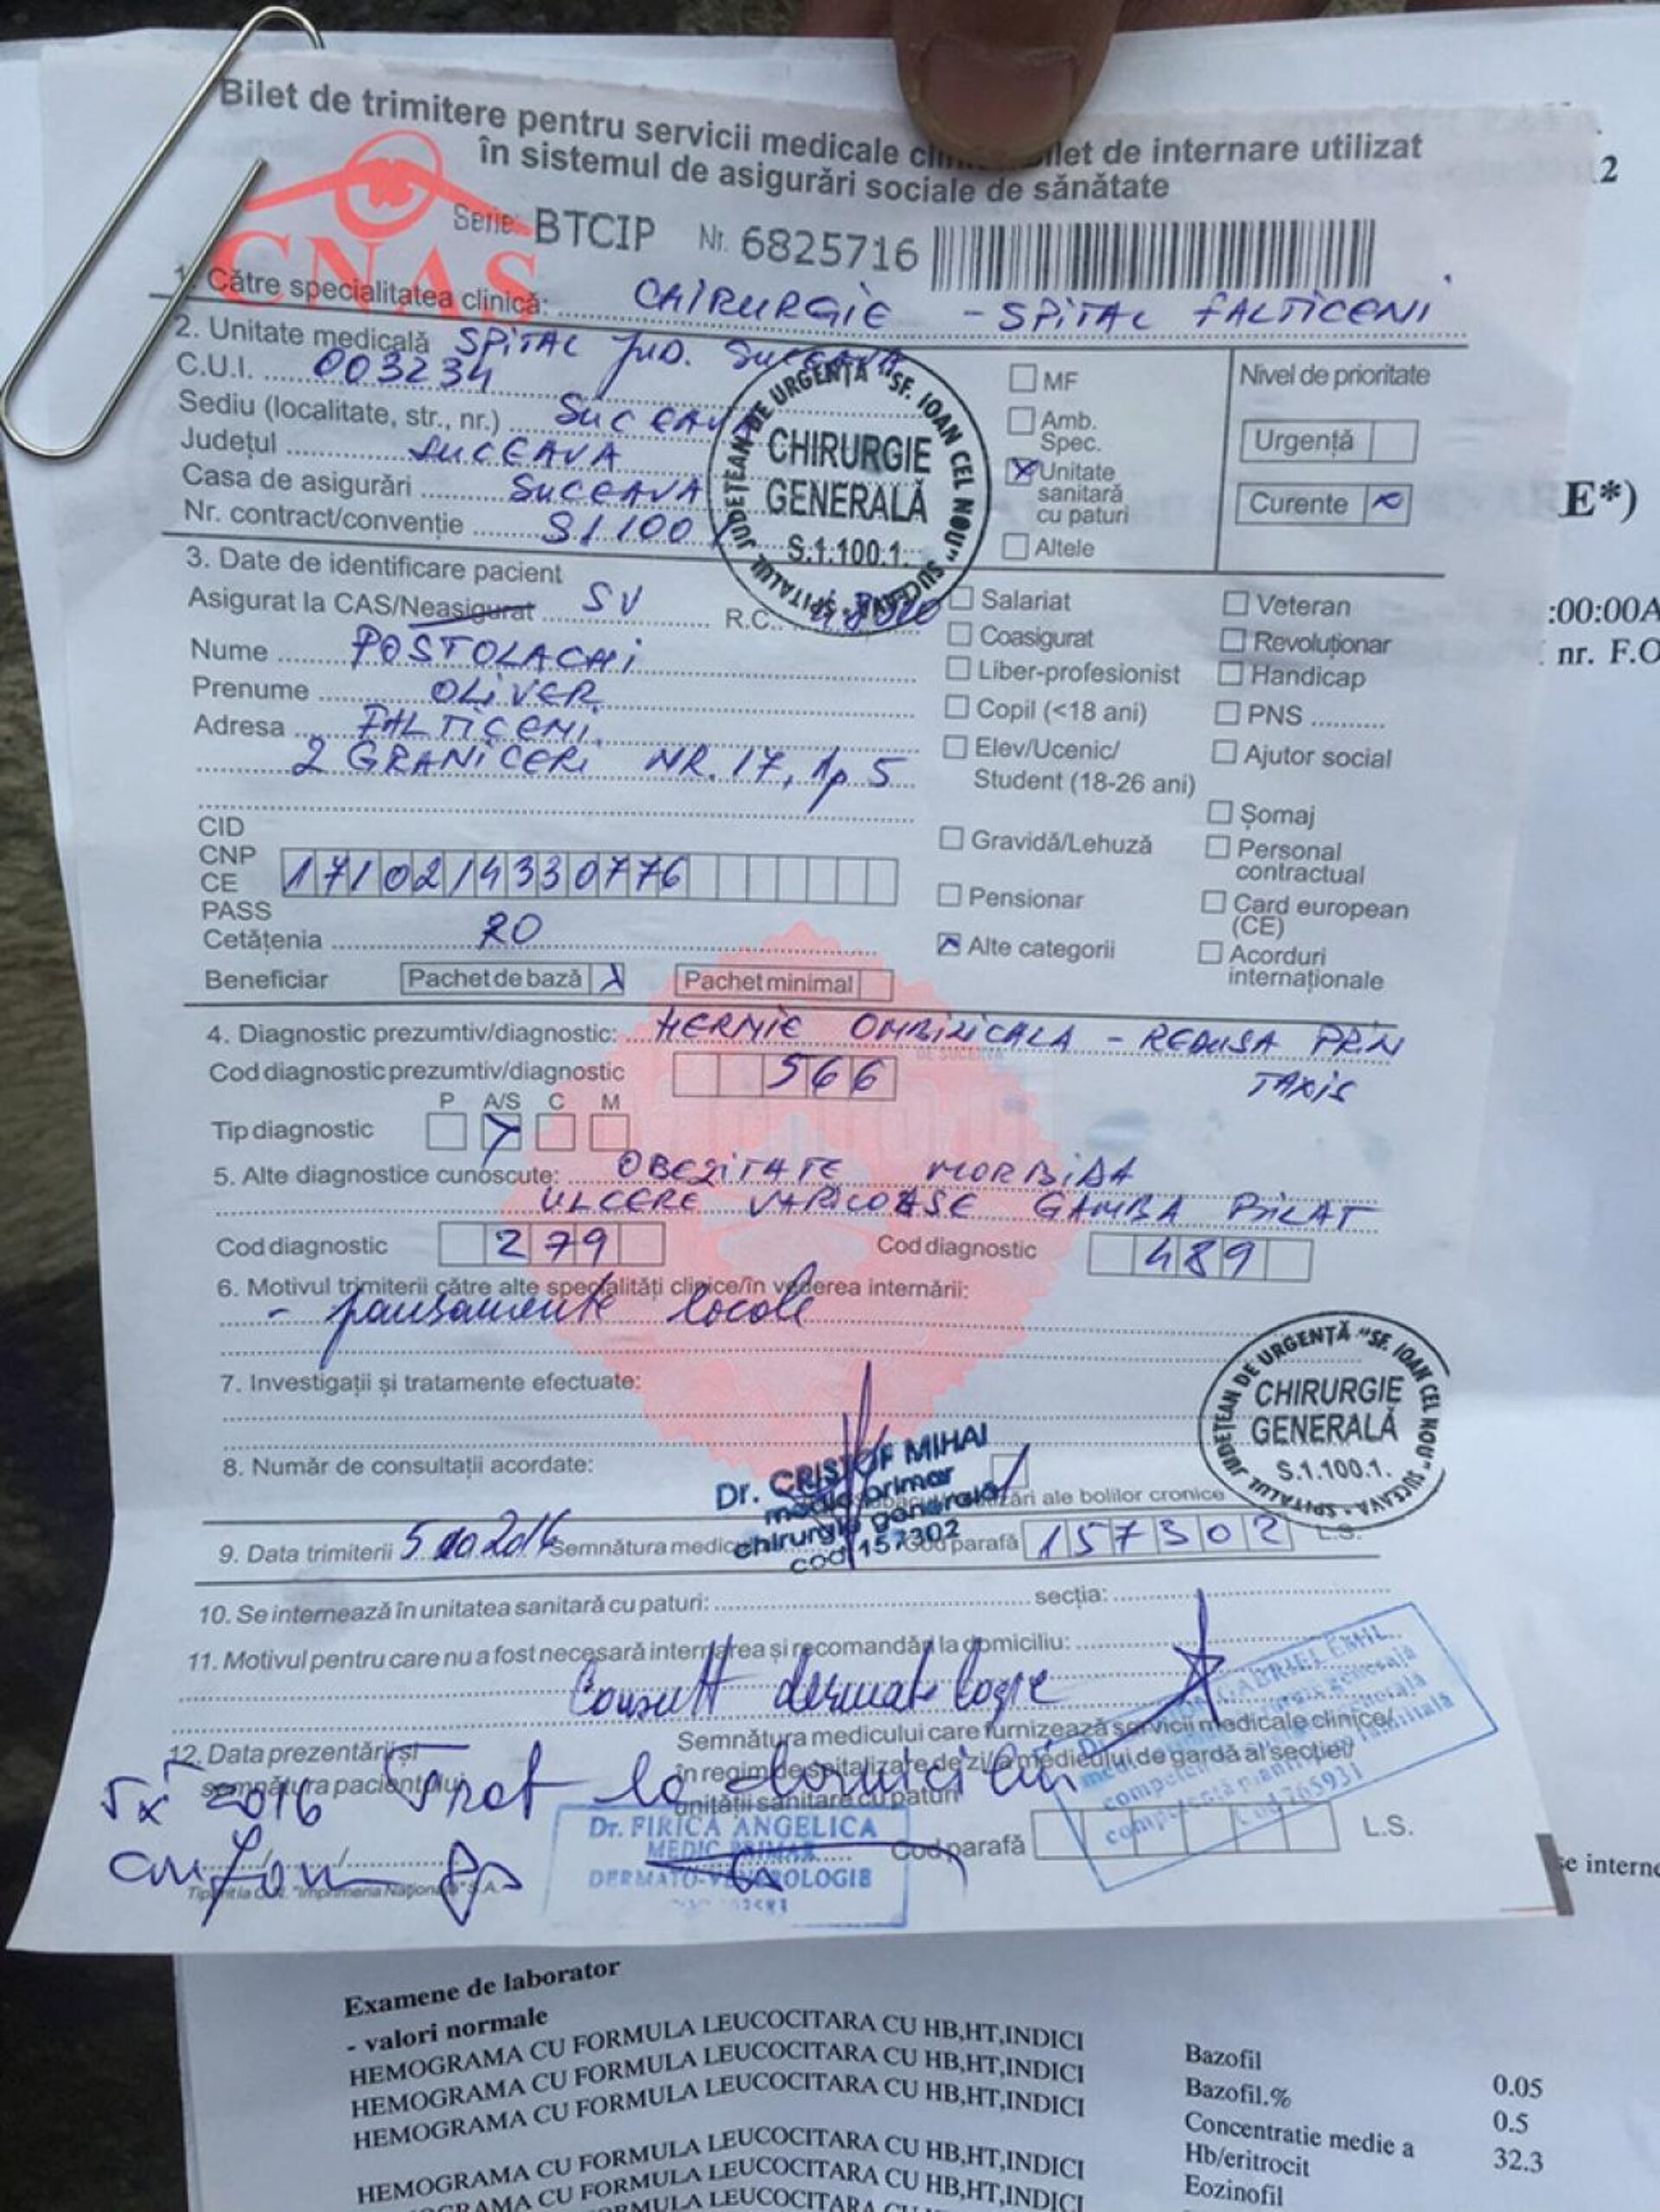 Bilet de trimitere pentru servicii medicale clinice/bilet de internare utilizat
în sistemul de asigurări sociale de sănătate
CNAS
Serie BTCIP Nr. 6825716
1. Către specialitatea clinică: CHIRURGIE - SPITAL FALTICENI
2. Unitate medicală SPITAL JUD. SUCEAVA
C.U.I. 003234
Sediu (localitate, str., nr.) SUCEAVA
Județul SUCEAVA
Casa de asigurări SUCEAVA
Nr. contract/convenție S1.100
SPITALUL JUDEȚEAN DE URGENȚĂ "SF. IOAN CEL NOU" SUCEAVA
CHIRURGIE
GENERALĂ
S.1.100.1.
MF
Amb.
Spec.
Unitate
sanitară
cu paturi
Altele
Nivel de prioritate
Urgență
Curente
3. Date de identificare pacient
Asigurat la CAS/Neasigurat SV R.C.
Nume POSTOLACHI
Prenume OLIVER
Adresa FALTICENI
2 GRANICERI NR. 17, Ap 5
Salariat
Coasigurat
Liber-profesionist
Copil (<18 ani)
Elev/Ucenic/
Student (18-26 ani)
Gravidă/Lehuză
Pensionar
Alte categorii
Veteran
Revoluționar
Handicap
PNS
Ajutor social
Șomaj
Personal
contractual
Card european
(CE)
Acorduri
internaționale
CID
CNP
CE 1710214330776
PASS
Cetățenia RO
Beneficiar Pachet de bază Pachet minimal
4. Diagnostic prezumtiv/diagnostic: HERNIE OMBILICALA - REDUSA PRIN
TAXIS
Cod diagnostic prezumtiv/diagnostic 566
P A/S C M
Tip diagnostic
5. Alte diagnostice cunoscute: OBEZITATE MORBIDA
ULCERE VARICOASE GAMBA BILAT
Cod diagnostic 279 Cod diagnostic 489
6. Motivul trimiterii către alte specialități clinice/în vederea internării:
- pansamente locale
7. Investigații și tratamente efectuate:
8. Număr de consultații acordate:
Dr. CRISTOF MIHAI
medic primar
chirurgie generală
cod 157302
ale bolilor cronice
SPITALUL JUDEȚEAN DE URGENȚĂ "SF. IOAN CEL NOU" SUCEAVA
CHIRURGIE
GENERALĂ
S.1.100.1.
9. Data trimiterii 5 10 2016 Semnătura medic parafă 157302 L.S.
10. Se internează în unitatea sanitară cu paturi: secția:
11. Motivul pentru care nu a fost necesară internarea și recomandări la domiciliu:
Consult dermatologie
Semnătura medicului care furnizează servicii medicale clinice/
în regim de spitalizare de zi/a medicului de gardă al secției/
unității sanitare cu paturi
12. Data prezentării și
semnătura pacientului
5 X 2016 Trat la domiciliu
Dr. FIRICĂ ANGELICA
MEDIC PRIMAR
DERMATO-VENEROLOGIE
Cod parafă L.S.
GABRIEL EMIL
Cod 765931
12
E*)
:00:00A
nr. F.O
se interne
Examene de laborator
- valori normale
HEMOGRAMA CU FORMULA LEUCOCITARA CU HB,HT,INDICI Bazofil 0.05
HEMOGRAMA CU FORMULA LEUCOCITARA CU HB,HT,INDICI Bazofil.% 0.5
HEMOGRAMA CU FORMULA LEUCOCITARA CU HB,HT,INDICI Concentratie medie a 32.3
Hb/eritrocit
HEMOGRAMA CU FORMULA LEUCOCITARA CU HB,HT,INDICI Eozinofil
FORMULA LEUCOCITARA CU HB,HT,INDICI